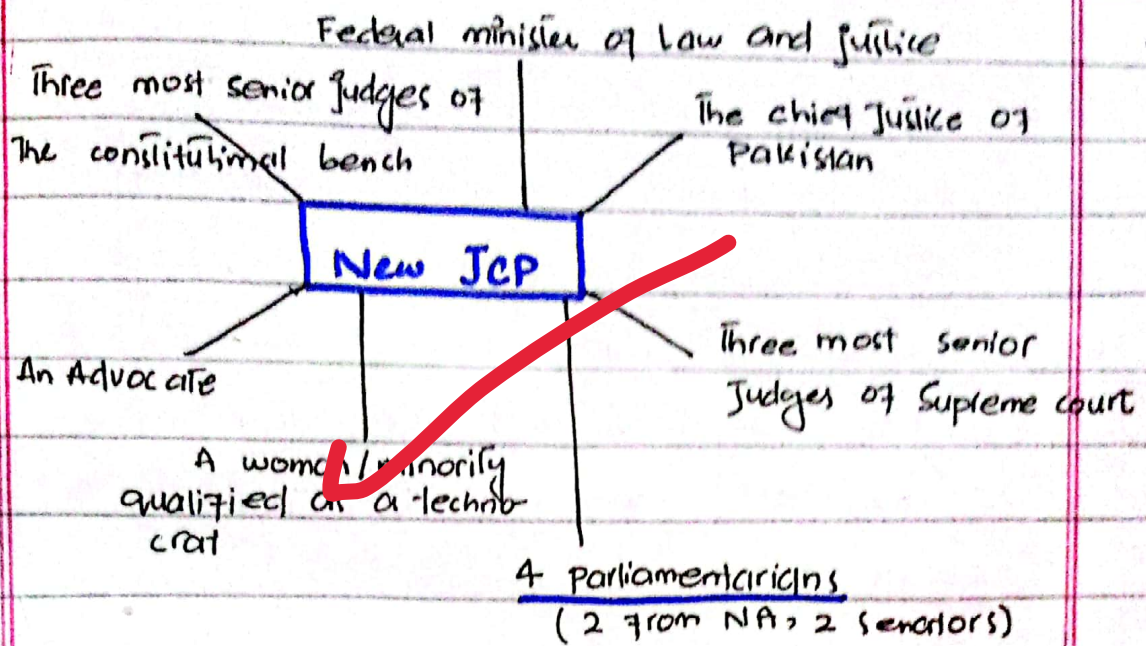 Federal minister of Law and justice
Three most senior Judges of
The constitutional bench
The chief Justice of
Pakistan
New JCP
Three most senior
Judges of Supreme court
An Advocate
A woman/minority
qualified as a techno
crat
4 parliamentarians
(2 from NA, 2 senators)